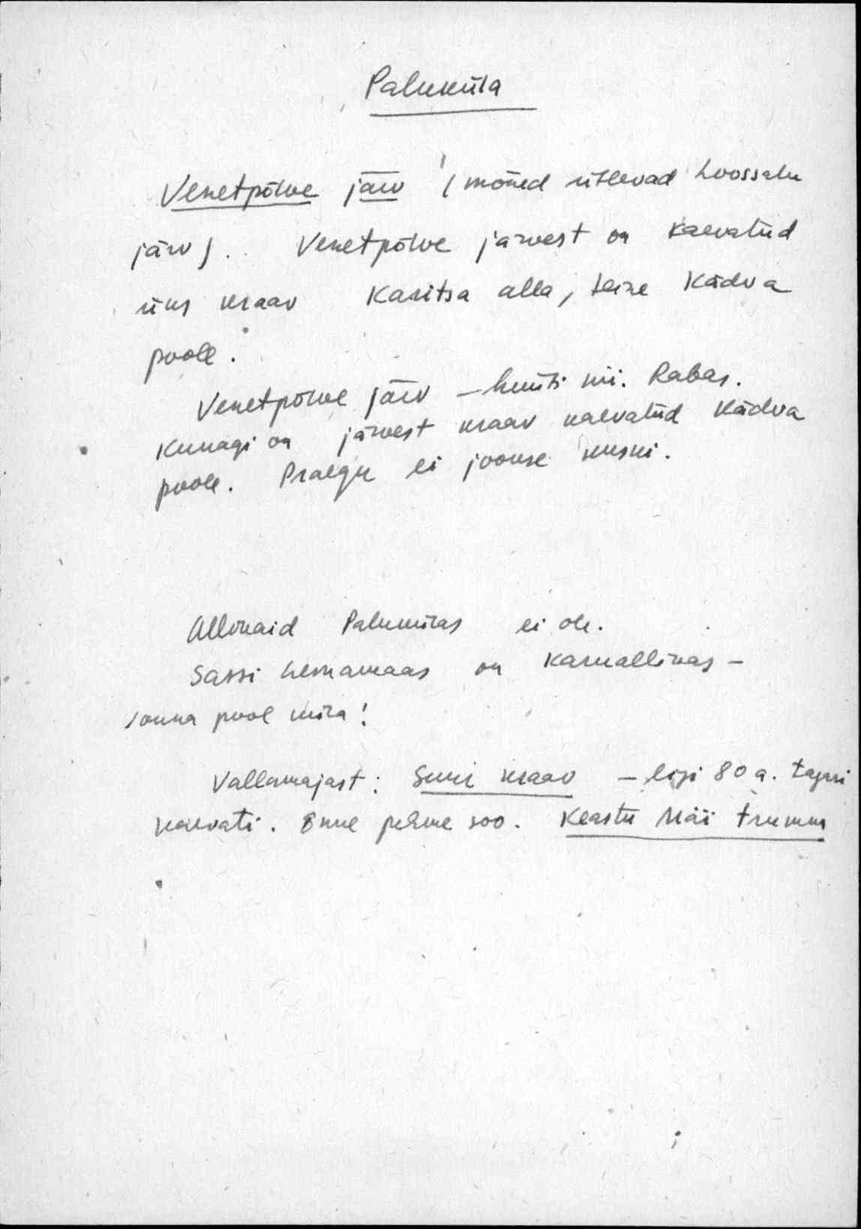 Paluküla
Venetpõlve järv (mõned ütlevad Loossalu
järv). Venetpõlve järvest on kaevatud
üks kraav Kasitsa alla, teine Kädva
poole.
Venetpõlve järv – Rabas.
Kunagi on järvest kraav kaevatud Kädva
poole. Praegu ei jookse kuski.
Allikaid Palukülas ei ole.
Sassi heinamaas on Karuallikas –
sonna pool küla!
Vallamajast: Suur kraav – ligi 80 a. tagasi
kaevati. Enne pehme soo. Keastu Mäe trumm